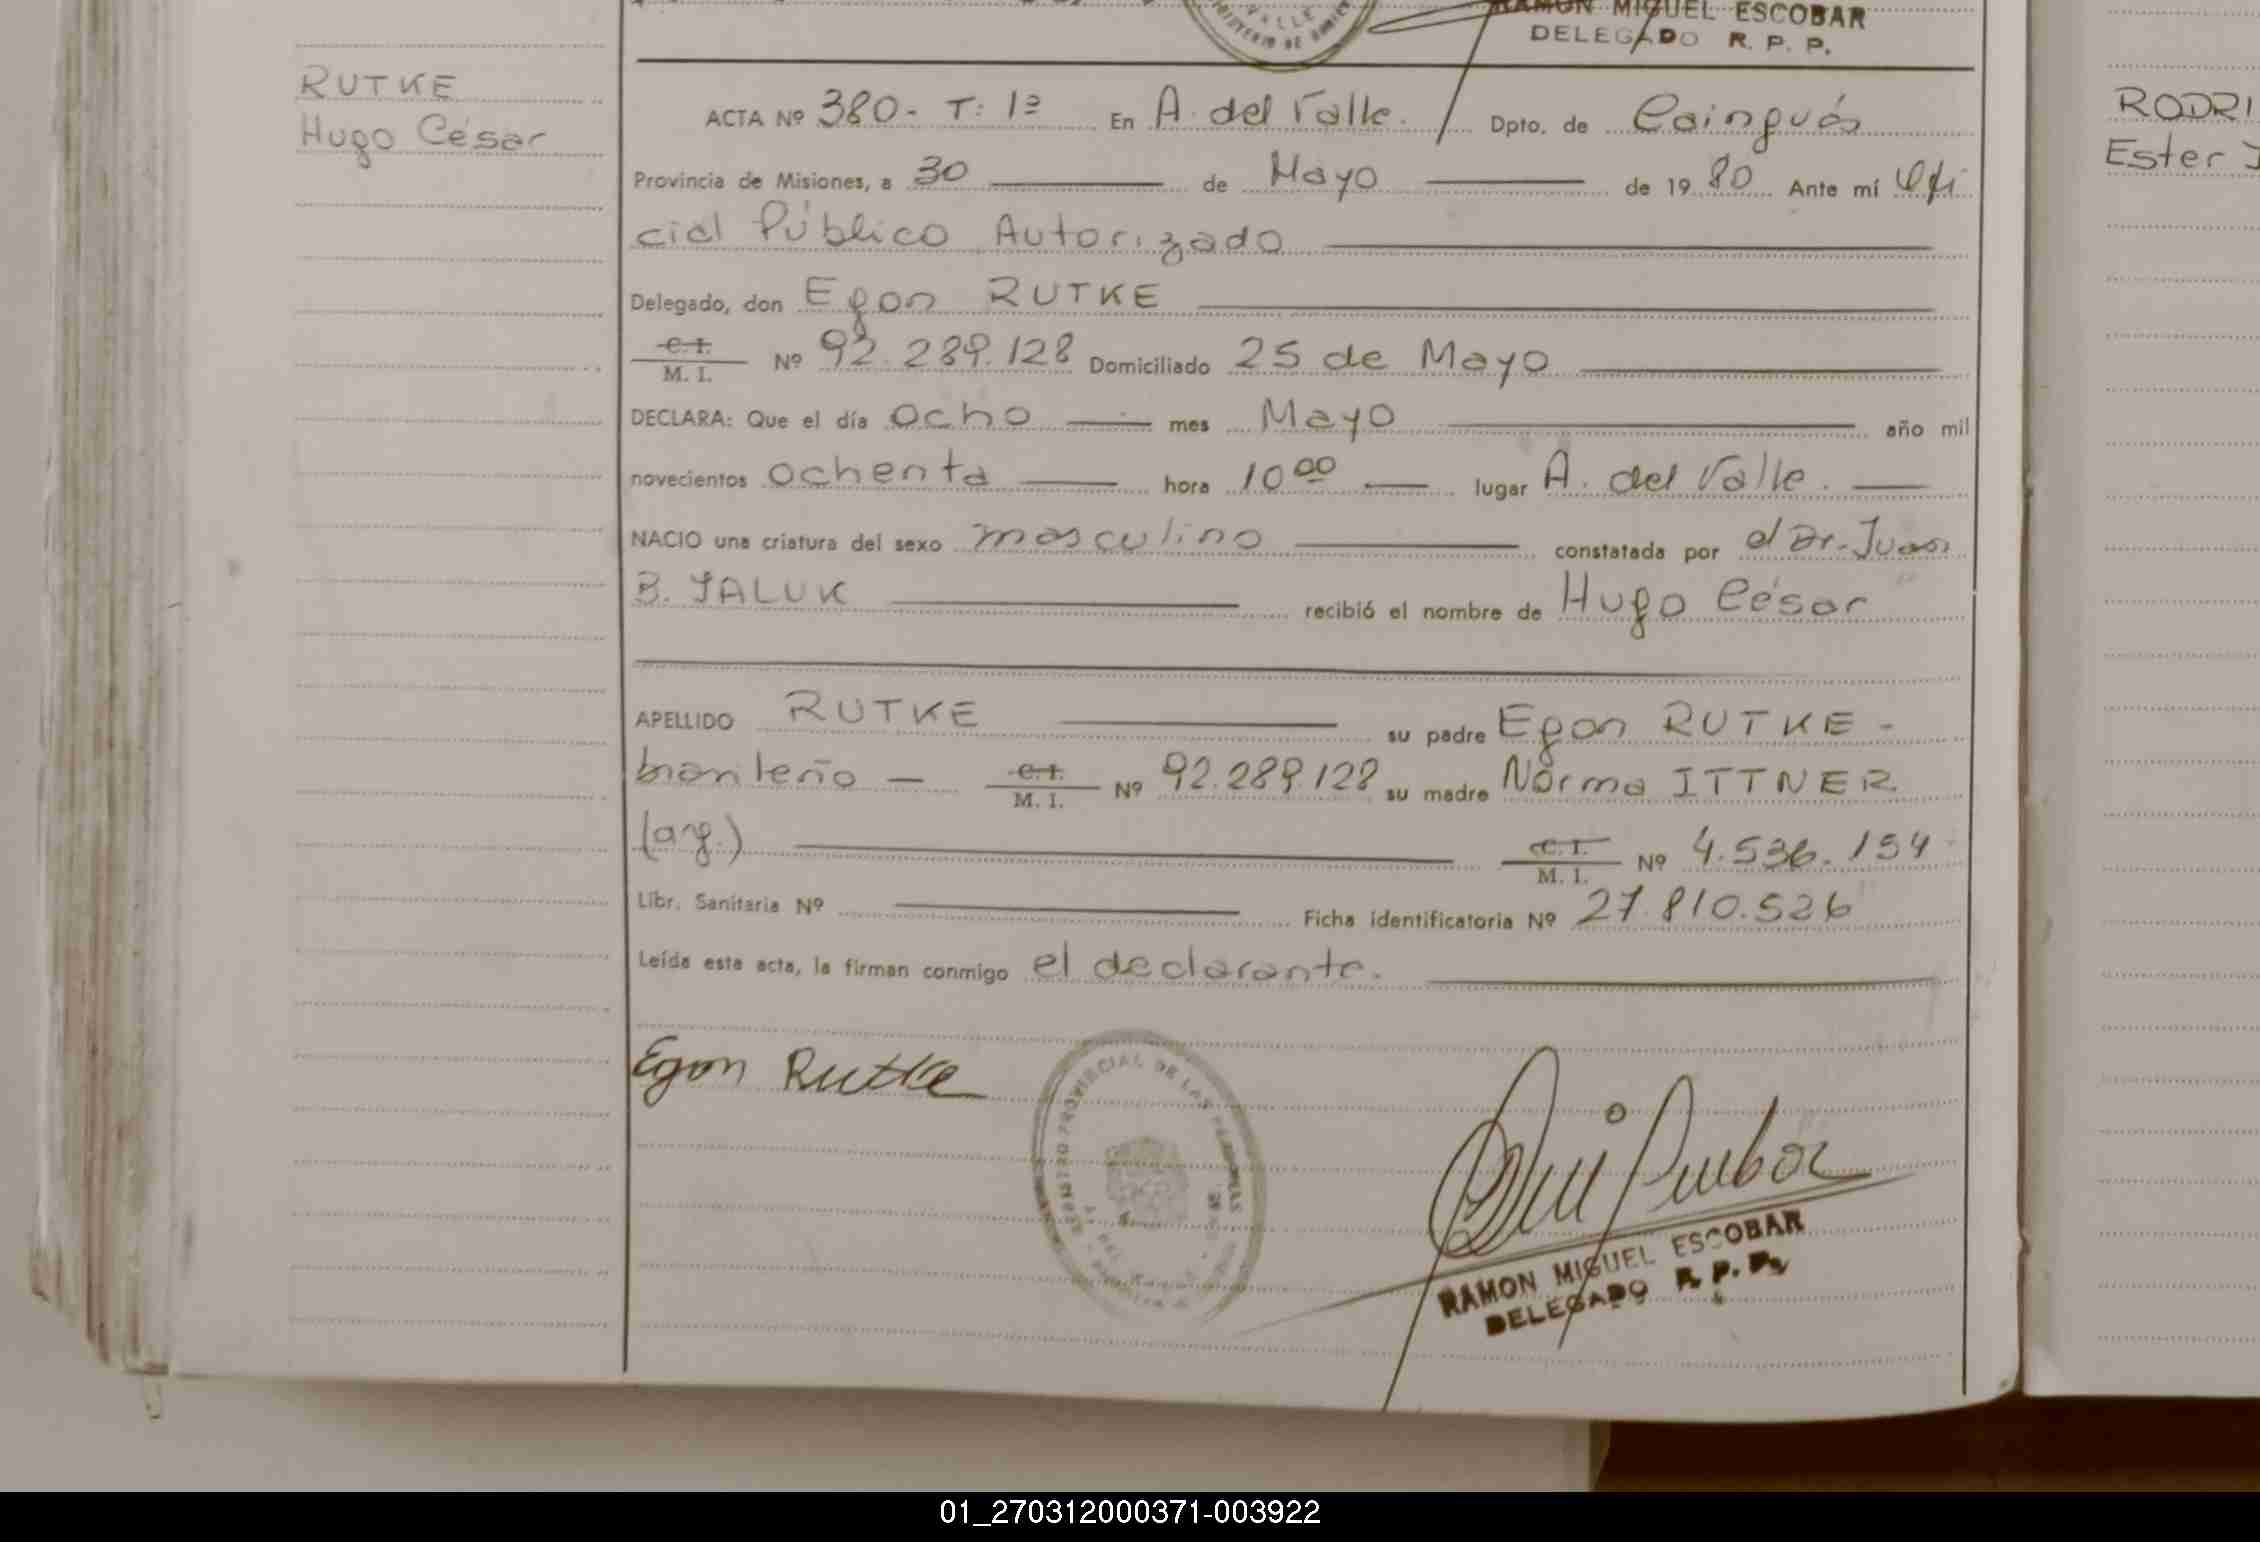 VALLE
RAMON MIGUEL ESCOBAR
DELEGADO R. P. P.
RUTKE
Hugo César
ACTA Nº 380- T: 1ª En A. del Valle. Dpto. de Cainguás
Provincia de Misiones, a 30 de Mayo de 19 80 Ante mí Ofi
cial Público Autorizado
Delegado, don Egon RUTKE
C. I.
M. I. Nº 92.289.128 Domiciliado 25 de Mayo
DECLARA: Que el día ocho mes Mayo año mil
novecientos ochenta hora 10 00 lugar A. del Valle.
NACIO una criatura del sexo masculino constatada por el Dr. Juan
B. YALUK recibió el nombre de Hugo César
APELLIDO RUTKE su padre Egon RUTKE -
C. I.
M. I. Nº 92.289.128 su madre Norma ITTNER
(arg.)
C. I.
M. I. Nº 4.536.154
Libr. Sanitaria Nº Ficha identificatoria Nº 27.810.526
Leída esta acta, la firman conmigo el declarante.
Egon Rutke
REGISTRO PROVINCIAL DE LAS PERSONAS
RAMON MIGUEL ESCOBAR
DELEGADO R. P. P.
RODRI
Ester
01_270312000371-003922